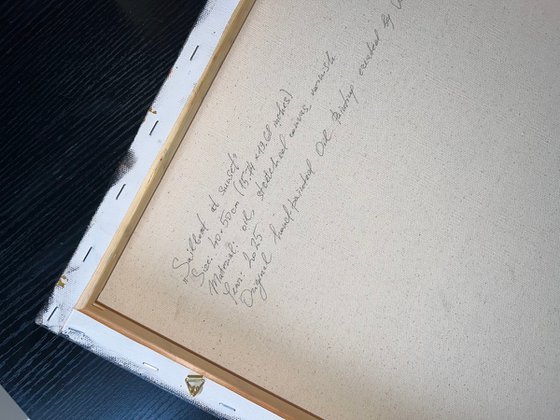 „Sailboat at sunset"
Size: 40x50cm (15.74 x 19.68 inches)
Material: oil, stretched canvas, varnish
Year: 2025
Original hand-painted Oil Painting created by